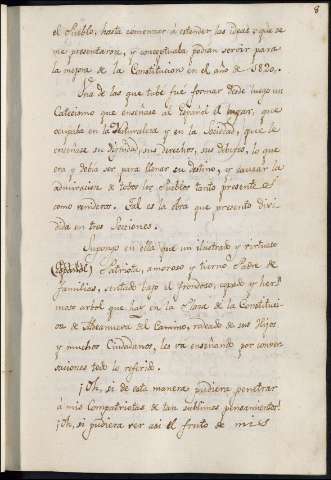 8
el Pueblo, hasta comenzar á estender las ideas, que se
me presentaron, y conceptuaba podian servir para
la mejora de la Constitucion en el año de 1820.
Una de las que tube fué formar desde luego un
Catecismo que enseñase al Español el lugar, que
ocupaba en la Naturaleza y en la Sociedad, que le
enseñase su Dignidad, sus derechos, sus debéres, lo que
era y debia ser para llenar su destino, y causar la
admiracion de todos los Pueblos tanto presentes
como venideros. Tal es la obra que presento divi-
dida en tres Secciones.
Supongo en ella que un ilustrado y virtuoso
(Español) Patriota, amoroso y tierno Padre de
familias, sentado bajo el frondoso, copado y her-
moso arbol que hay en la Plaza de la Constitu-
cion de Miranueva del Camino, rodeado de sus Hijos
y muchos Ciudadanos, les va enseñando por conver-
saciones todo lo referido.
¡Oh, si de esta manera pudiera penetrar
á mis Compatriotas de tan sublimes pensamientos!
¡Oh, si pudiera ver asi el fruto de mis